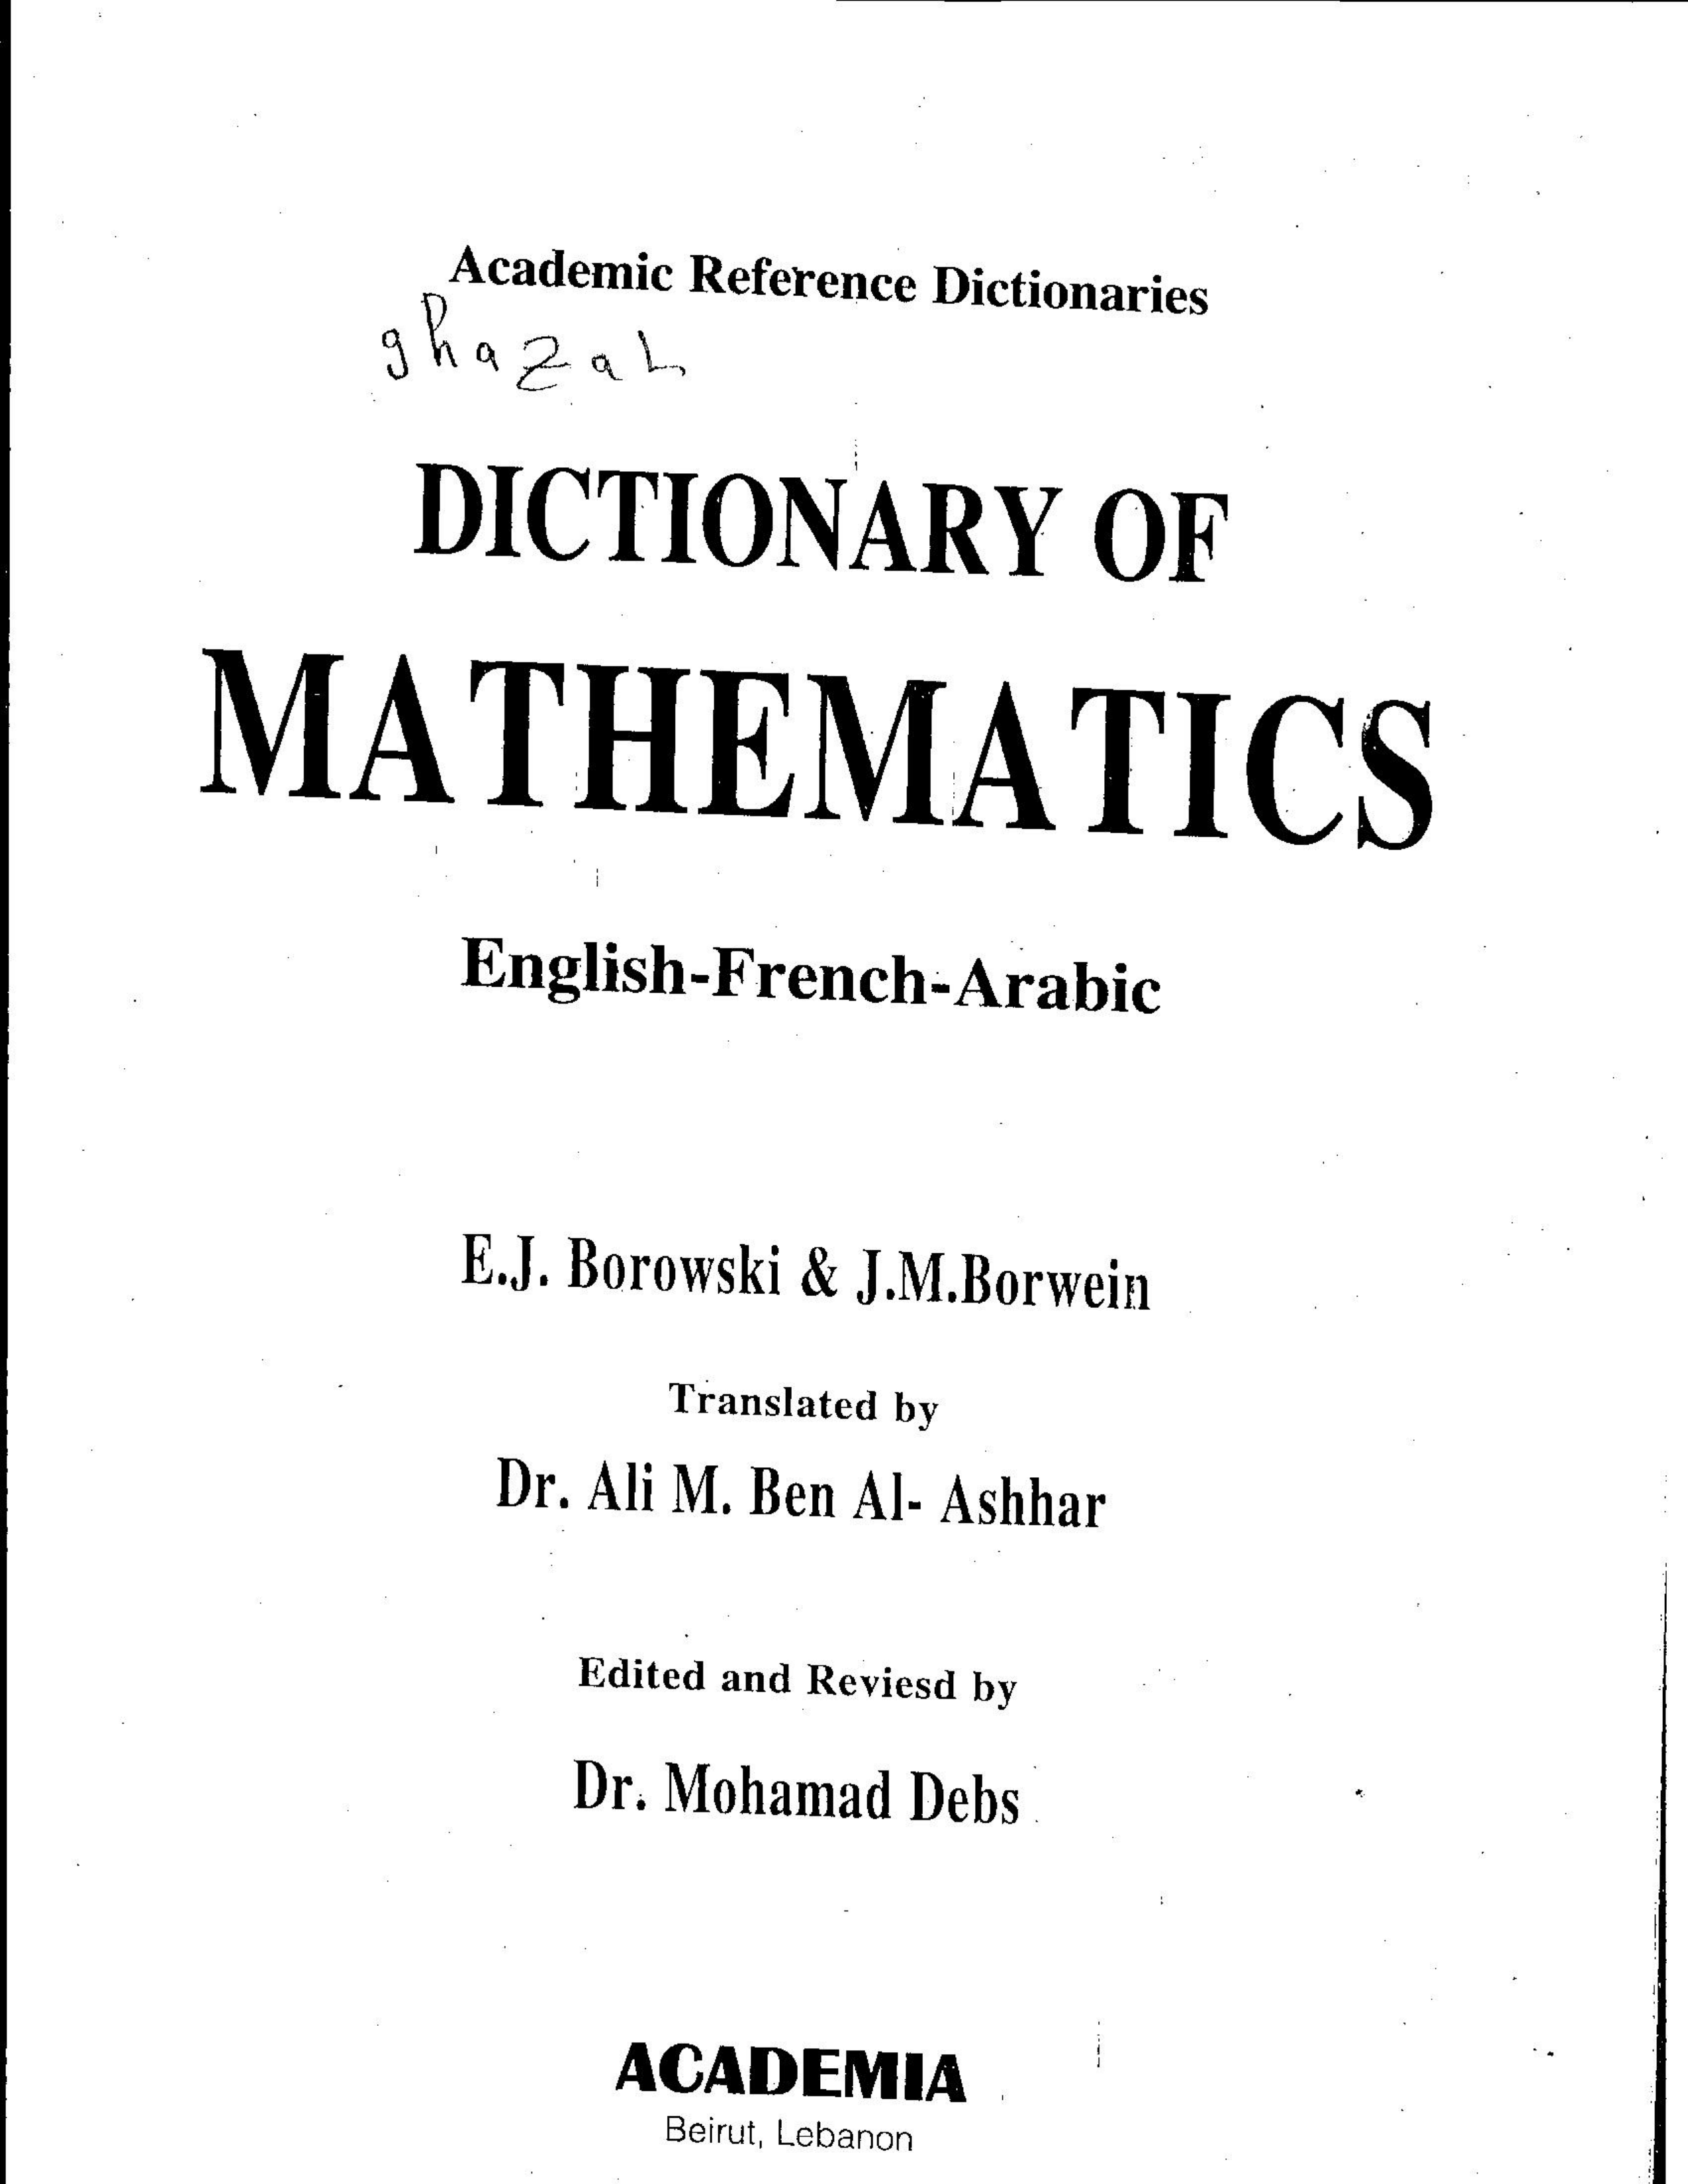 Academic Reference Dictionaries
ghazal
DICTIONARY OF
MATHEMATICS
English-French-Arabic
E.J. Borowski & J.M.Borwein
Translated by
Dr. Ali M. Ben Al- Ashhar
Edited and Reviesd by
Dr. Mohamad Debs
ACADEMIA
Beirut, Lebanon